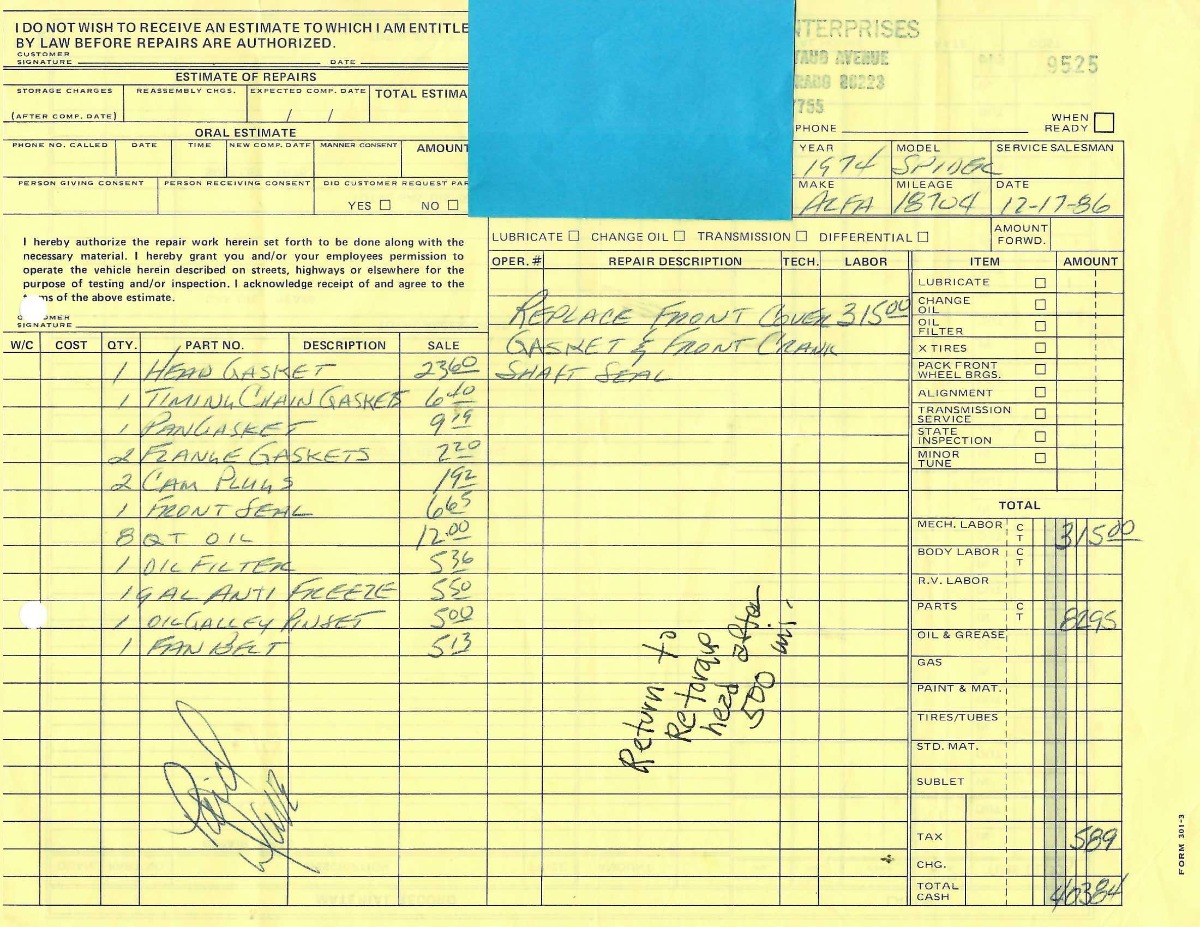 I DO NOT WISH TO RECEIVE AN ESTIMATE TO WHICH I AM ENTITLE
BY LAW BEFORE REPAIRS ARE AUTHORIZED.
CUSTOMER
SIGNATURE DATE
ESTIMATE OF REPAIRS
STORAGE CHARGES REASSEMBLY CHGS. EXPECTED COMP. DATE TOTAL ESTIMA
(AFTER COMP. DATE) / /
ORAL ESTIMATE
PHONE NO. CALLED DATE TIME NEW COMP. DATE MANNER CONSENT AMOUN
PERSON GIVING CONSENT PERSON RECEIVING CONSENT DID CUSTOMER REQUEST PAR
YES NO
NTERPRISES
AVENUE
80223
7755
9525
PHONE
WHEN
READY
YEAR MODEL SERVICE SALESMAN
1974 SPIDER
MAKE MILEAGE DATE
ALFA 18704 12-17-86
I hereby authorize the repair work herein set forth to be done along with the
necessary material. I hereby grant you and/or your employees permission to
operate the vehicle herein described on streets, highways or elsewhere for the
purpose of testing and/or inspection. I acknowledge receipt of and agree to the
ms of the above estimate.
OMER
SIGNATURE
LUBRICATE CHANGE OIL TRANSMISSION DIFFERENTIAL
AMOUNT
FORWD.
OPER. # REPAIR DESCRIPTION TECH. LABOR
REPLACE FRONT COVER 315 00
GASKET & FRONT CRANK
SHAFT SEAL
W/C COST QTY. PART NO. DESCRIPTION SALE
1 HEAD GASKET 23 60
1 TIMING CHAIN GASKETS 6 40
1 PAN GASKET 9 19
2 FLANGE GASKETS 2 20
2 CAM PLUGS 1 92
1 FRONT SEAL 6 65
8 QT OIL 12.00
1 OIL FILTER 5 36
1 GAL ANTI FREEZE 5 50
1 OIL GALLEY PIN SET 5 00
1 FAN BELT 5 13
Paid
Return to
Retorque
head after
500 mi.
ITEM AMOUNT
LUBRICATE
CHANGE
OIL
OIL
FILTER
X TIRES
PACK FRONT
WHEEL BRGS.
ALIGNMENT
TRANSMISSION
SERVICE
STATE
INSPECTION
MINOR
TUNE
TOTAL
MECH. LABOR C T 315 00
BODY LABOR C T
R.V. LABOR
PARTS C T 82 95
OIL & GREASE
GAS
PAINT & MAT.
TIRES/TUBES
STD. MAT.
SUBLET
TAX 5 89
CHG.
TOTAL
CASH 403 84
FORM 301-3